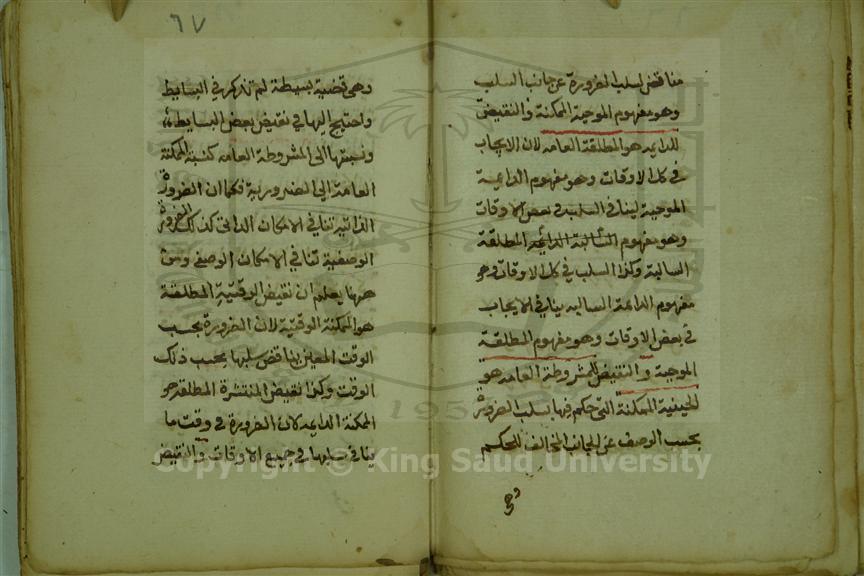 مناقض لسلب الضرورة عن جانب السلب
وهو مفهوم الموجبة الممكنة والنقيض
للدايمه هو المطلقة العامه لان الايجاب
في كل الاوقات وهو مفهوم الدايمة
الموجبة ينافي السلب في بعض الاوقات
وهو مفهوم السالبة المطلقة
السالبة وكذا السلب في كل الاوقات وهو
مفهوم الدايمة السالبه ينافي الايجاب
في بعض الاوقات وهو مفهوم المطلقة
الموجبة والنقيض للمشروطة العامه هو
الحينية الممكنة التي حكم فيها بسلب الضرورة
بحسب الوصف عن الجانب المخالف للحكم
وهي
٦٧
وهي قضية بسيطة لم تذكر في البسايط
واحتيج اليها في نقيض بعض البسايط
ونسبتها الى المشروطة العامه كنسبة الممكنة
العامة الى الضرورية فكما ان الضرورة
الذاتية تنافي الامكان الذاتي كذلك الضرورة
الوصفية تنافي الامكان الوصفي ومن
ههنا يعلم ان نقيض الوقتية المطلقة
هو الممكنة الوقتية لان الضرورة بحسب
الوقت المعين يناقض سلبها بحسب ذلك
الوقت وكذا نقيض المنتشرة المطلقه هو
الممكنة الدايمه لان الضرورة في وقت ما
ينافي سلبها في جميع الاوقات والنقيض
1957
Copyright © King Saud University